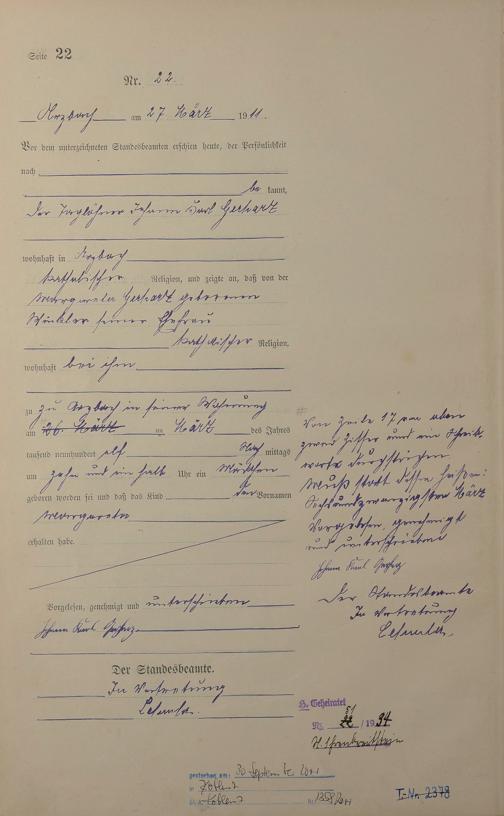 Seite 22
Nr. 22
Arzbach am 27 März 1911.
Vor dem unterzeichneten Standesbeamten erschien heute, der Persönlichkeit
nach
be kannt,
der Taglöhner Johann Karl Gerharz
wohnhaft in Arzbach
katholischer Religion, und zeigte an, daß von der
Margareta Gerharz geborenen
Winkler seiner Ehefrau
katholischer Religion,
wohnhaft bei ihm
zu zu Arzbach in seiner Wohnung
am 26. März März des Jahres
tausend neunhundert elf Nachmittags
um zehn und ein halb Uhr ein Mädchen
geboren worden sei und daß das Kind den Vornamen
Margareta
erhalten habe.
Vorgelesen, genehmigt und unterschrieben
Johann Karl Gerharz
Der Standesbeamte.
In Vertretung
Von Zeile 17 von oben
zwei Ziffer und ein
durchstrichen
Muß statt dessen heißen:
Sechsundzwanzigsten März
Vorgelesen, genehmigt
und unterschrieben
Johann Karl Gerharz
Der Standesbeamte
In Vertretung
H. Geheiratet
Nr. /1934
gestorben am: 30 September 2011
in Koblenz
Koblenz Nr. 1358/2011
I-Nr. 2378